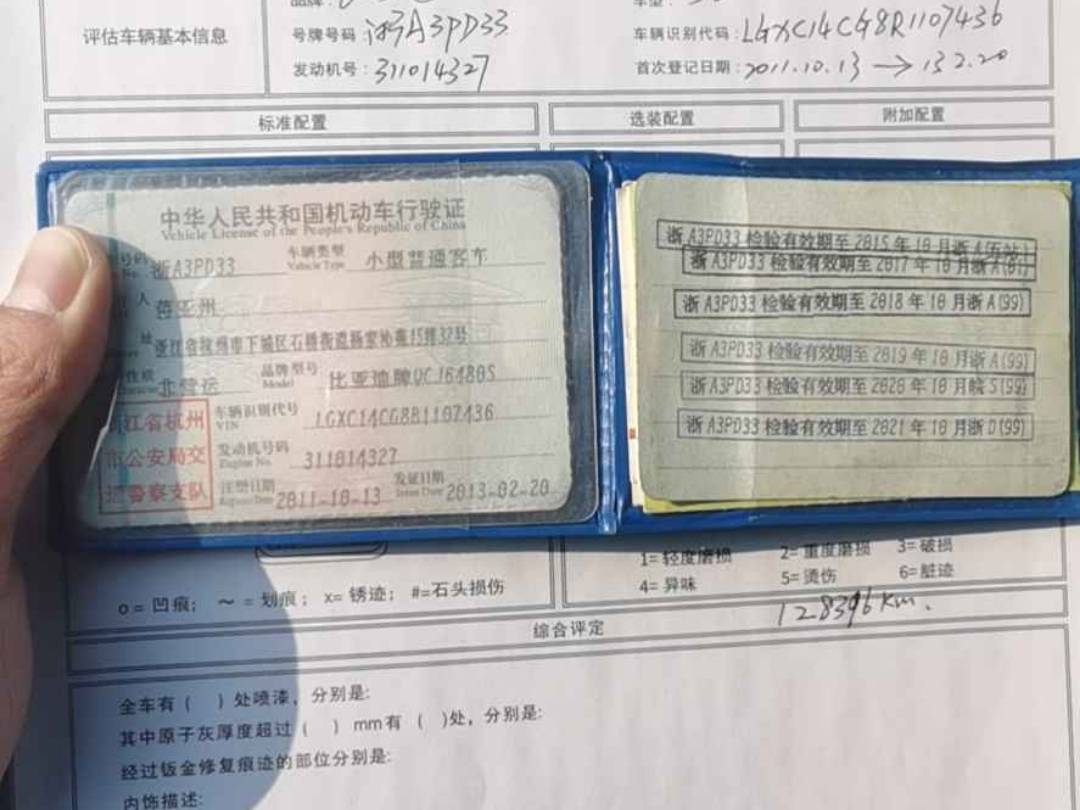 评估车辆基本信息
号牌号码：浙A3PD33
车辆识别代码：LGXC14CG8R1107436
发动机号：311014327
首次登记日期：2011.10.13 → 13.2.20
标准配置
选装配置
附加配置
中华人民共和国机动车行驶证
Vehicle License of the People's Republic of China
浙A3PD33
车辆类型 Vehicle Type 小型普通客车
人
址 浙江省杭州市下城区石桥街道杨家
非营运
品牌型号 Model 比亚迪牌QCJ6480S
车辆识别代号 VIN LGXC14CG8B1107436
发动机号码 Engine No. 311014327
注册日期 Register Date 2011-10-13
发证日期 Issue Date 2013-02-20
江省杭州
市公安局交
通警察支队
浙A3PD33检验有效期至2015年10月浙A
浙A3PD33检验有效期至2017年10月浙A
浙A3PD33检验有效期至2018年10月浙A(99)
浙A3PD33检验有效期至2019年10月浙A(99)
浙A3PD33检验有效期至2020年10月皖S(99)
浙A3PD33检验有效期至2021年10月浙D(99)
o = 凹痕； ～ = 划痕； x= 锈迹； #=石头损伤
1= 轻度磨损 2= 重度磨损 3= 破损
4= 异味 5= 烫伤 6= 脏迹
128396km.
综合评定
全车有（ ）处喷漆，分别是:
其中原子灰厚度超过（ ）mm有（ ）处，分别是:
经过钣金修复痕迹的部位分别是:
内饰描述: